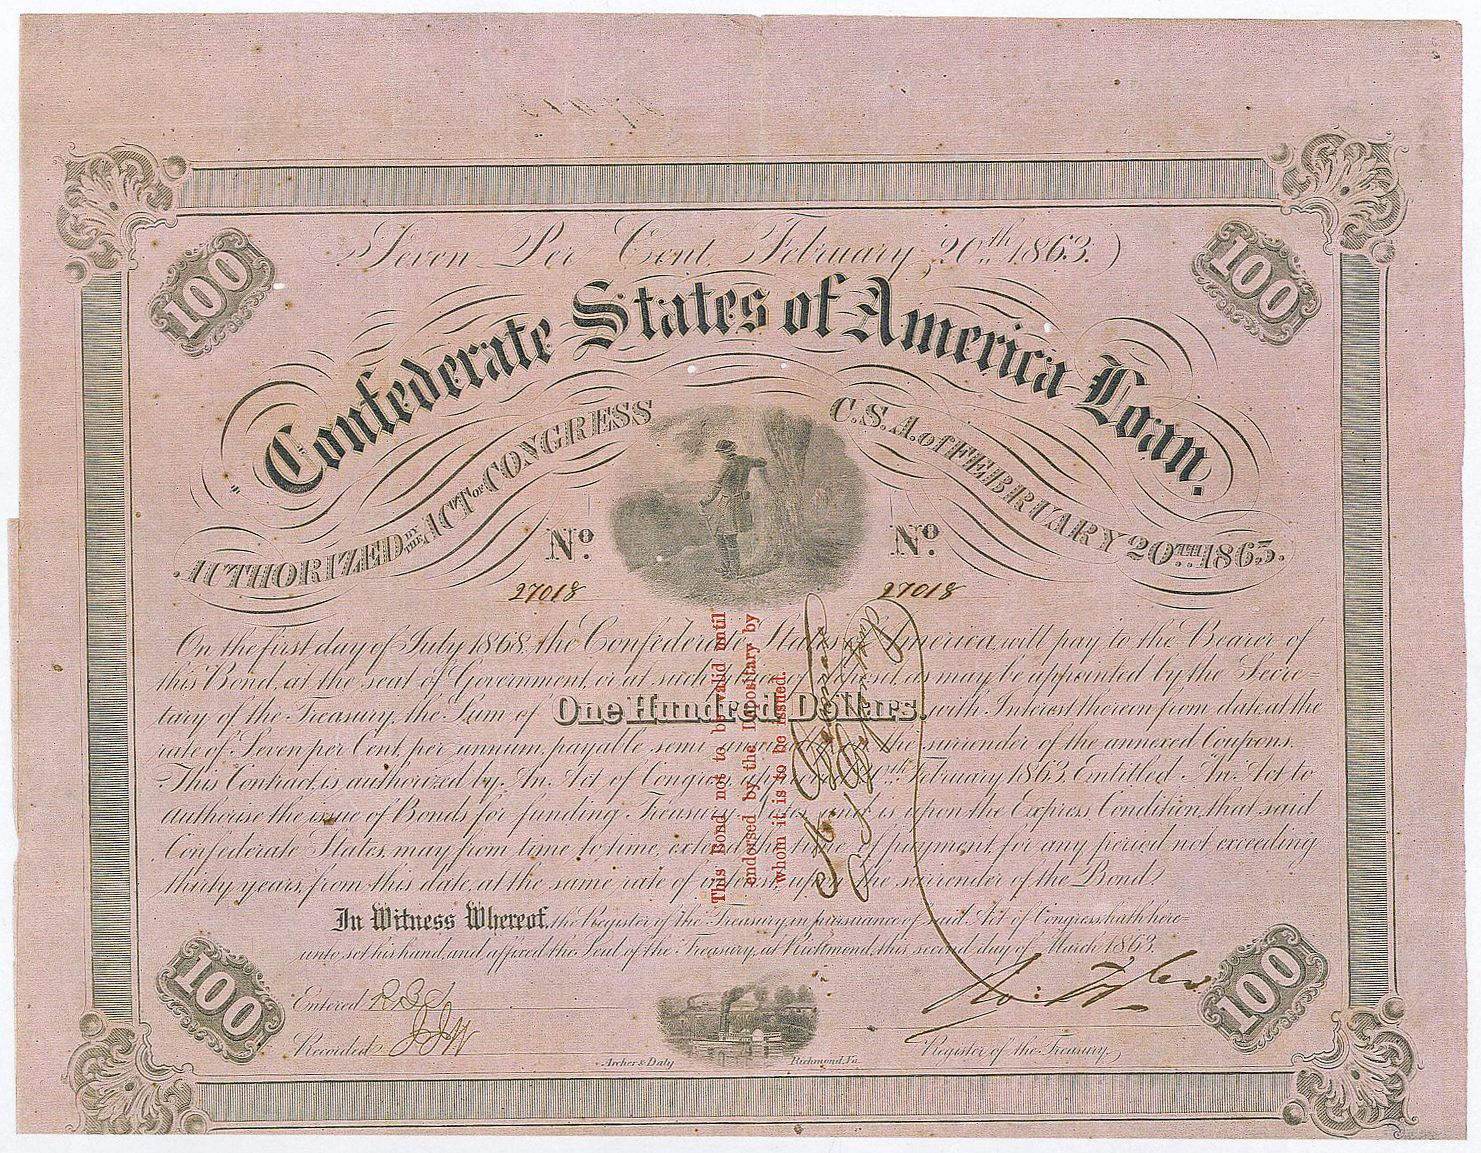 Seven Per Cent, February 20th 1863.
100
100
Confederate States of America Loan.
AUTHORIZED BY THE ACT OF CONGRESS
C.S.A. of FEBRUARY 20TH 1863.
No.
No.
27018
27018
On the first day of July 1868, the Confederate States of America, will pay to the Bearer of
this Bond, at the seat of Government, or at such deposit, as may be appointed by the Secre=
tary of the Treasury, the Sum of One Hundred Dollars. with Interest thereon from date, at the
rate of Seven per Cent, per annum, payable semi the surrender of the annexed Coupons.
This Contract is authorized by An Act of Congress, 20th February 1863. Entitled An Act to
authorise the issue of Bonds for funding Treasury Notes, and is upon the Express Condition, that said
Confederate States, may from time to time, extend the time of payment, for any period not exceeding
thirty years, from this date, at the same rate of interest, upon the surrender of the Bond
In Witness Whereof, the Register of the Treasury, in pursuance of said Act of Congress, hath here=
unto set his hand, and affixed the Seal of the Treasury, at Richmond, this second day of March 1863.
This Bond not to be valid until
endorsed by the Depositary by
whom it is to be issued.
100
100
Entered
Recorded
Archer & Daly
Richmond, Va.
Register of the Treasury.